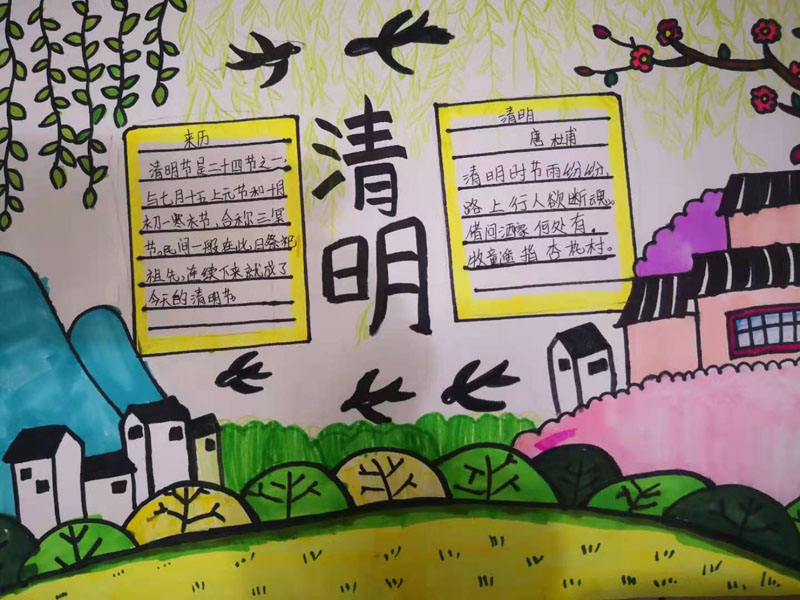 来历
清明节是二十四节之一,
与七月十五上元节和十月
初一寒衣节,合称三冥
节。民间一般在此日祭祀
祖先,连续下来就成了
今天的清明节。
清明
清明
唐 杜甫
清明时节雨纷纷,
路上行人欲断魂。
借问酒家何处有,
牧童遥指杏花村。